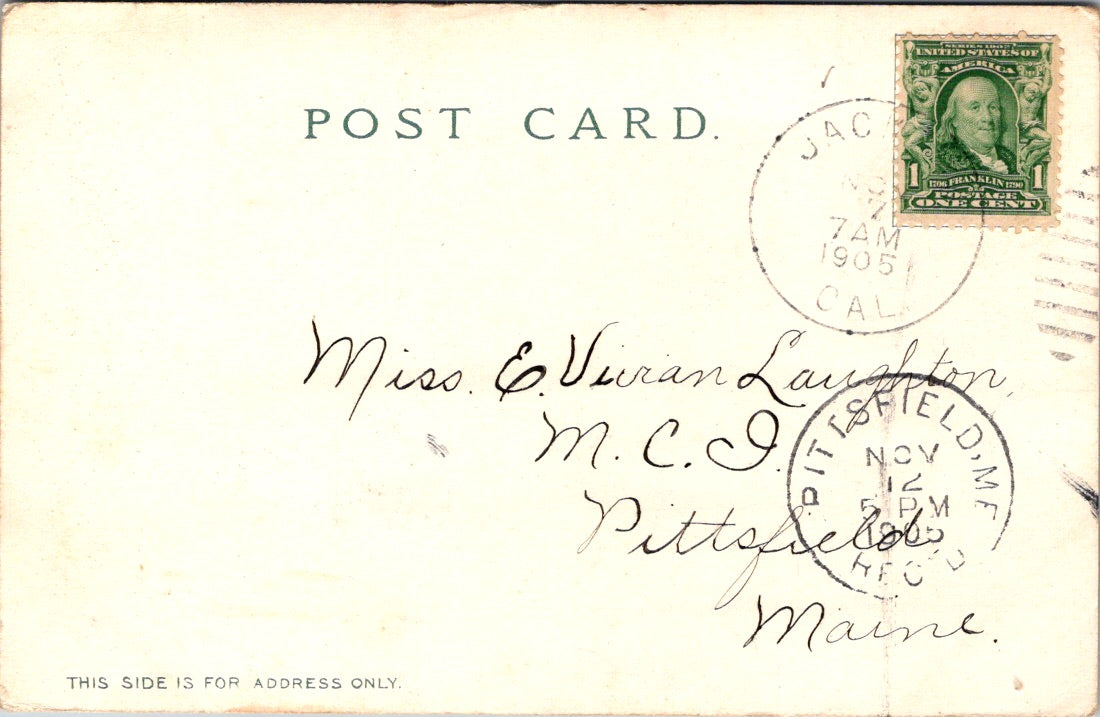 POST CARD.
SERIES 1902
UNITED STATES OF
AMERICA
1 1706 FRANKLIN 1790 1
POSTAGE
ONE CENT
7
7AM
1905
CAL.
Miss. E. Vivian Laughton,
M. C. I.
Pittsfield
Maine.
PITTSFIELD, ME
NOV
12
5 PM
1905
REC'D
THIS SIDE IS FOR ADDRESS ONLY.